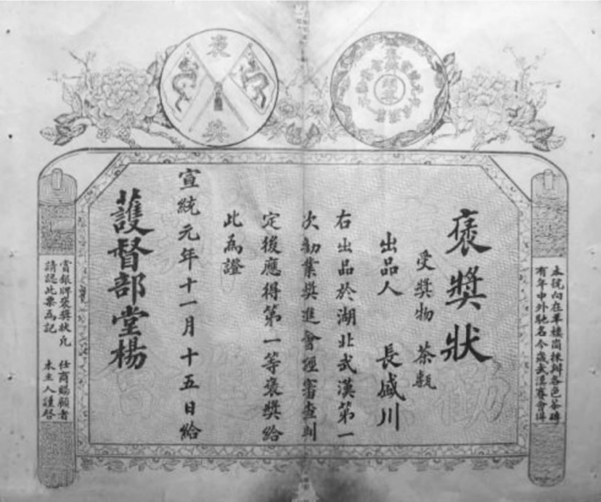 褒
獎
本號向在羊樓崗採辦各色茶磚
有年中外馳名今歲武漢賽會得
褒獎狀
受獎物 茶甎
出品人 長盛川
右出品於湖北武漢第一
次勸業獎進會經審查判
定後應得第一等褒獎給
此為證
宣統元年十一月十五日給
護督部堂楊
賞銀牌褒獎狀凡 仕商賜顧者
請認此票為記 本主人謹啓